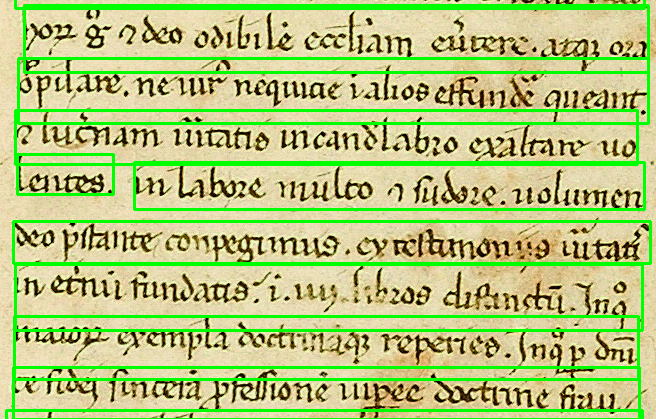 hoꝝ gͦ ⁊ deo odibilē eccl̄iam eūtere. atqꝫ ora
op̄pilare. ne uirꝰ nequicie ī alios effundē queant.
⁊ luc̄nam uītatis in cand̄labro exaltare uo
lentes. in labore multo ⁊ sudore. uolumen
deo p̄stante conpegimus. ex testimoniis uītatꝭ
in et̄nū fundatis. ī .iiij. libros distinctū. Inqͦ
maioꝝ exempla doctrinaqꝫ reperies. Inqͦ ꝑ dn̄i
ce fidei sincerā ꝓfessionē uipeee doctrine frau